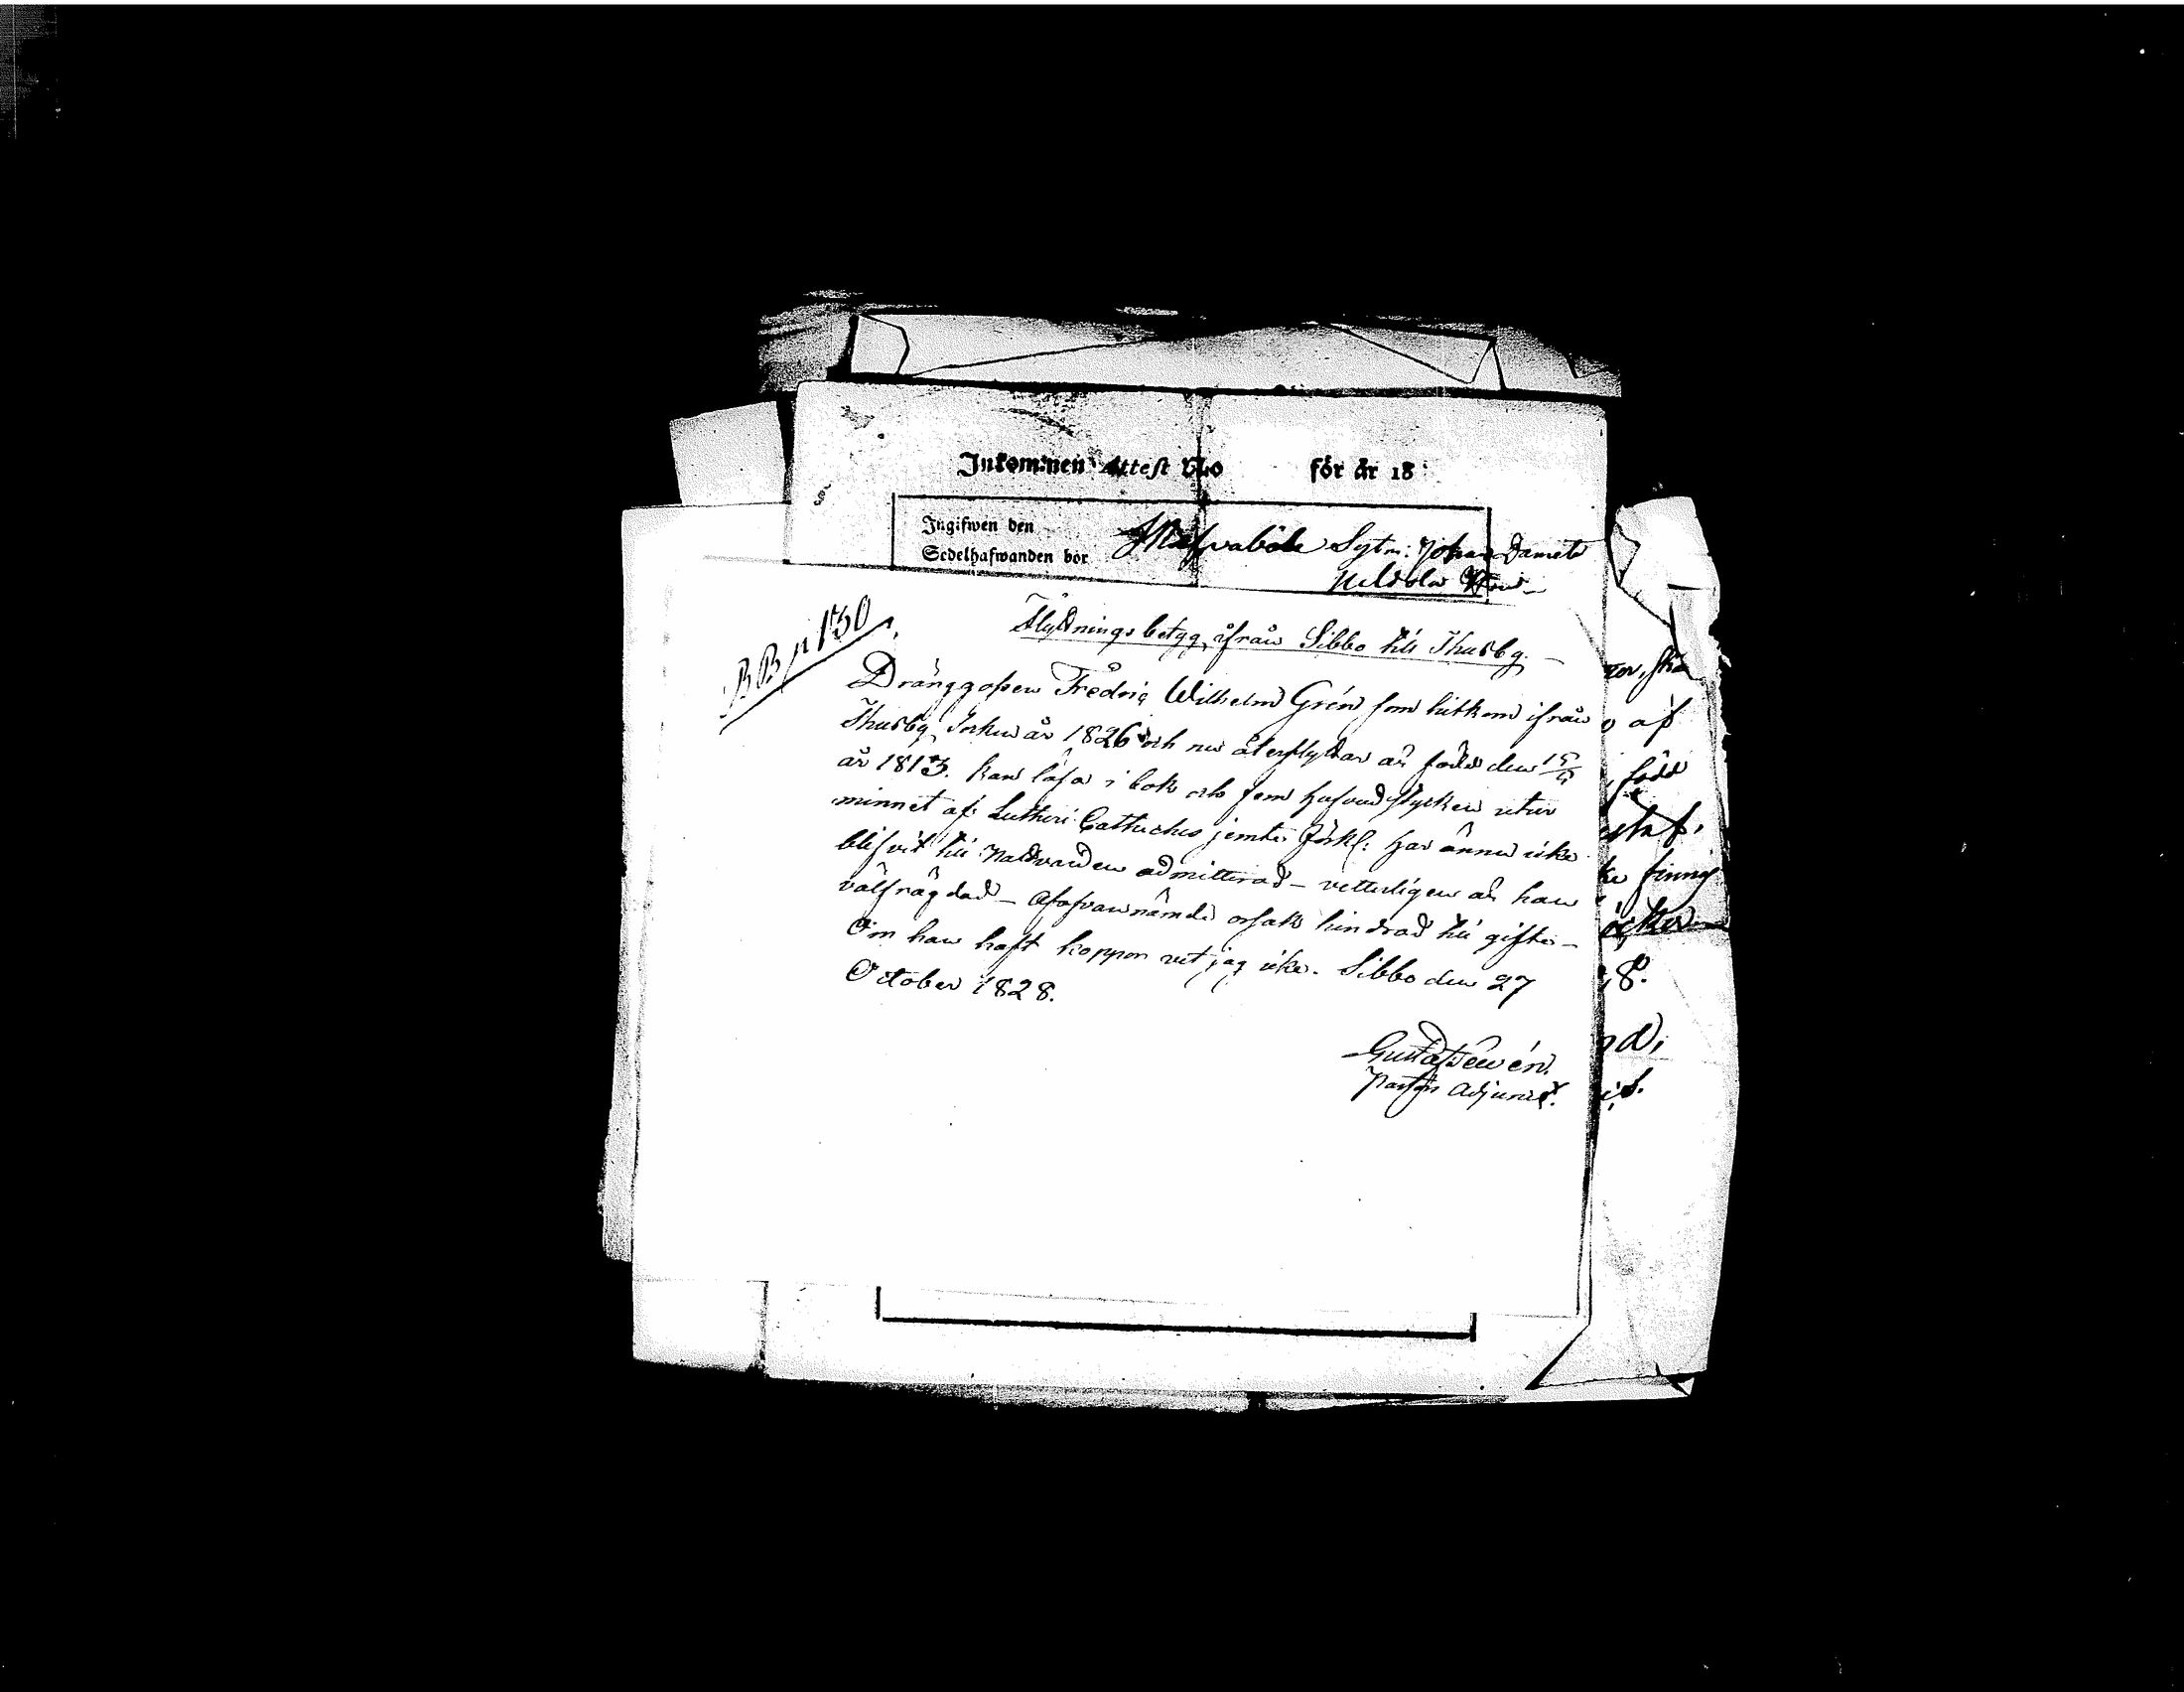 Inkommen Attest No för år 18
Ingifwen den
Sedelhafwanden bor Sytn: Johan
BB p 130
Flyttnings betyg, ifrån Sibbo till Thusby.
Dränggossen Fredric Wilhelm Grén som hitkom ifrån
Thusby Sokn år 1826 och nu återflyttar är född den 15/
år 1813. kan läsa i bok och fem hufvudstycken utur
minnet af Lutheri Catheches jemte förkl: har ännu icke
blifvit till Nattvarden admitterad – vetterligen är han
välfrägdad – af ofvannämde orsak hindrad till gifte –
Om han haft koppor vet jag icke. Sibbo den 27
October 1828.
Gust
Past: Adjunct.
af
född
8.